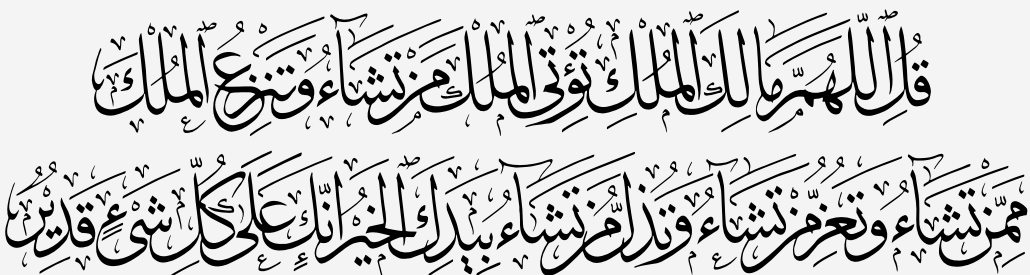 قُلِ اللَّهُمَّ مَالِكَ الْمُلْكِ تُؤْتِي الْمُلْكَ مَنْ تَشَاءُ وَتَنْزِعُ الْمُلْكَ
مِمَّنْ تَشَاءُ وَتُعِزُّ مَنْ تَشَاءُ وَتُذِلُّ مَنْ تَشَاءُ بِيَدِكَ الْخَيْرُ إِنَّكَ عَلَى كُلِّ شَيْءٍ قَدِيرٌ